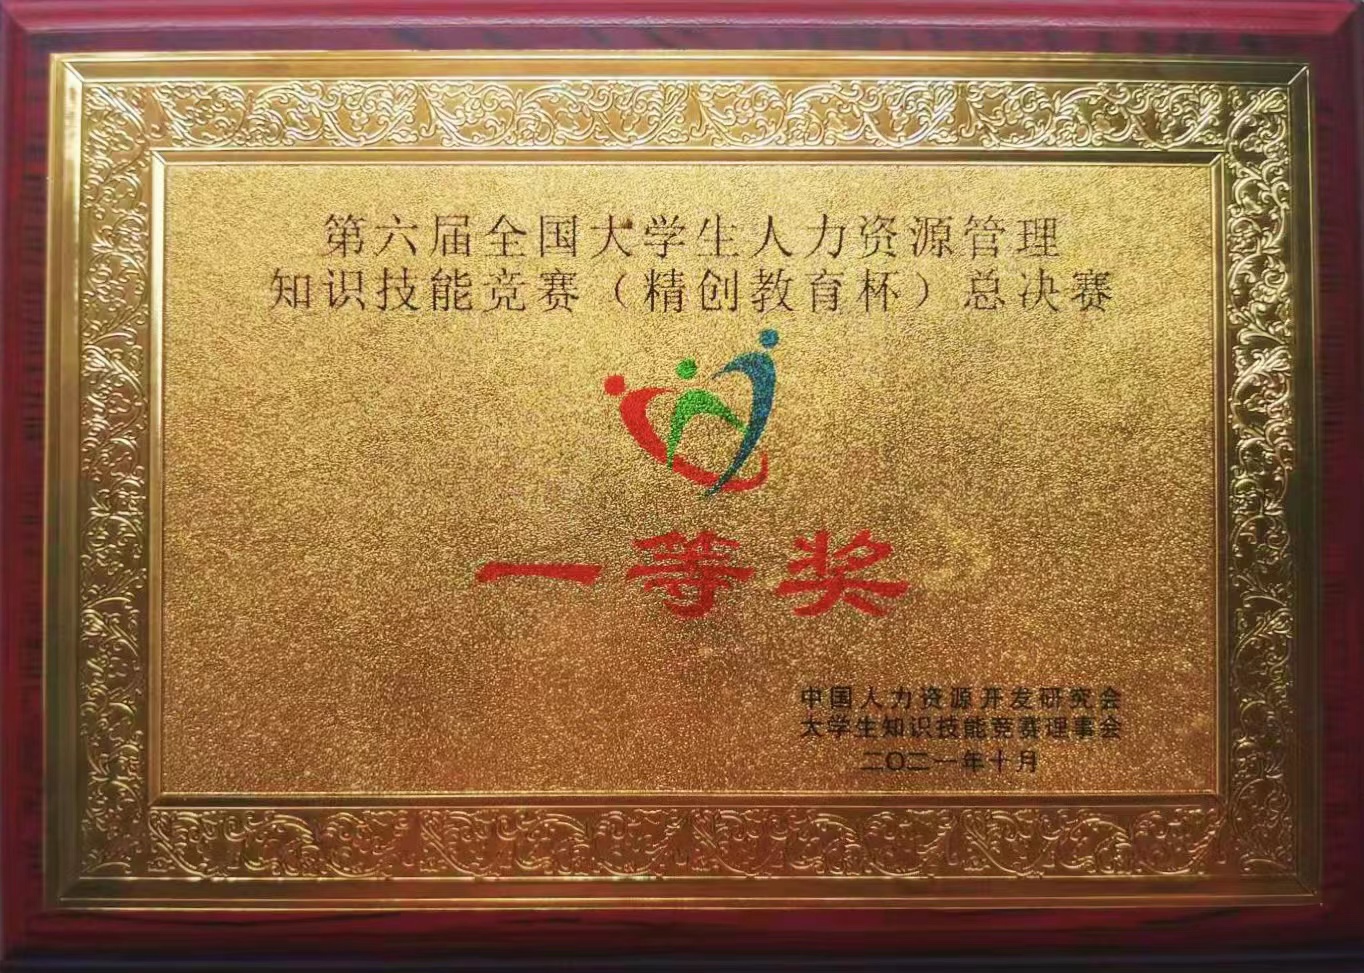 第六届全国大学生人力资源管理
知识技能竞赛（精创教育杯）总决赛
一等奖
中国人力资源开发研究会
大学生知识技能竞赛理事会
二〇二一年十月